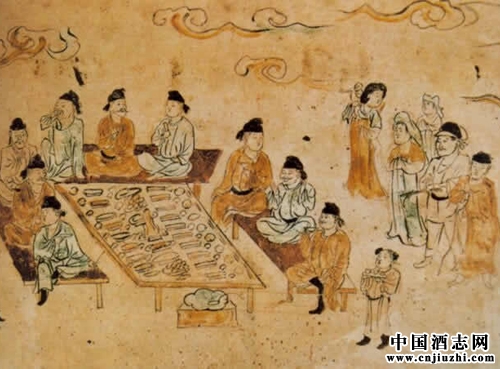 中国酒志网
www.cnjiuzhi.com